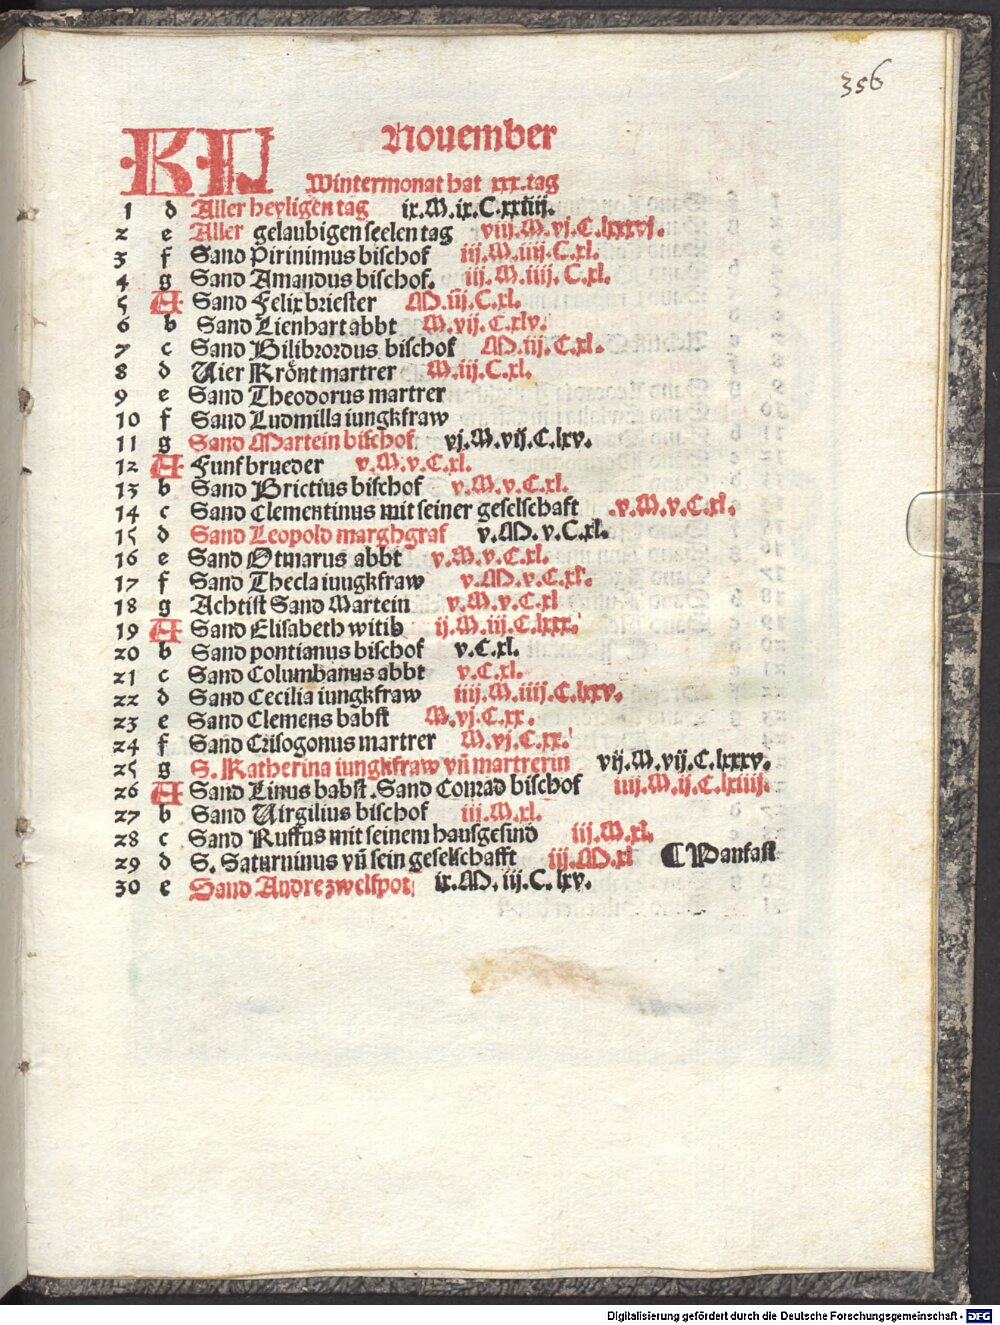 356
KL Nouember
Wintermonat hat xxx.tag
1 d Aller heyligen tag ix.M.ix.C.xxiiij.
2 e Aller gelaubigen seelen tag viii.M.vj.C.lxxxvj.
3 f Sand Pirinimus bischof iij.M.iiij.C.xl.
4 g Sand Amandus bischof. iij.M.iiij.C.xl.
5 A Sand Felix briester M.iij.C.xl.
6 b Sand Lienhart abbt M.vij.C.xlv.
7 c Sand Bilibrordus bischof M.iij.C.xl.
8 d Vier Krönt martrer M.iij.C.xl.
9 e Sand Theodorus martrer
10 f Sand Ludmilla iungkfraw
11 g Sand Martein bischof vj.M.vij.C.lxv.
12 A Funf brueder v.M.v.C.xl.
13 b Sand Brictius bischof v.M.v.C.xl.
14 c Sand Clementinus mit seiner geselschaft .v.M.v.C.xl.
15 d Sand Leopold marghgraf v.M.v.C.xl.
16 e Sand Otmarus abbt v.M.v.C.xl.
17 f Sand Thecla iungkfraw v.M.v.C.xl.
18 g Achtist Sand Martein v.M.v.C.xl
19 A Sand Elisabeth witib ij.M.iij.C.lxxx.
20 b Sand pontianus bischof v.C.xl.
21 c Sand Columbanus abbt v.C.xl.
22 d Sand Cecilia iungkfraw iiij.M.iiij.C.lxxv.
23 e Sand Clemens babst M.vj.C.xx.
24 f Sand Crisogonus martrer M.vj.C.xx.
25 g S. Katherina iungkfraw vn̄ martrerin vij.M.vij.C.lxxxv.
26 A Sand Linus babst .Sand Conrad bischof iiij.M.ij.C.lxiiij.
27 b Sand Virgilius bischof iij.M.xl.
28 c Sand Ruffus mit seinem hausgesind iij.M.xl.
29 d S. Saturninus vn̄ sein geselschafft iij.M.xl ¶ Panfast
30 e Sand Andre zwelfpot ix.M.iij.C.lxv.
Digitalisierung gefördert durch die Deutsche Forschungsgemeinschaft - DFG